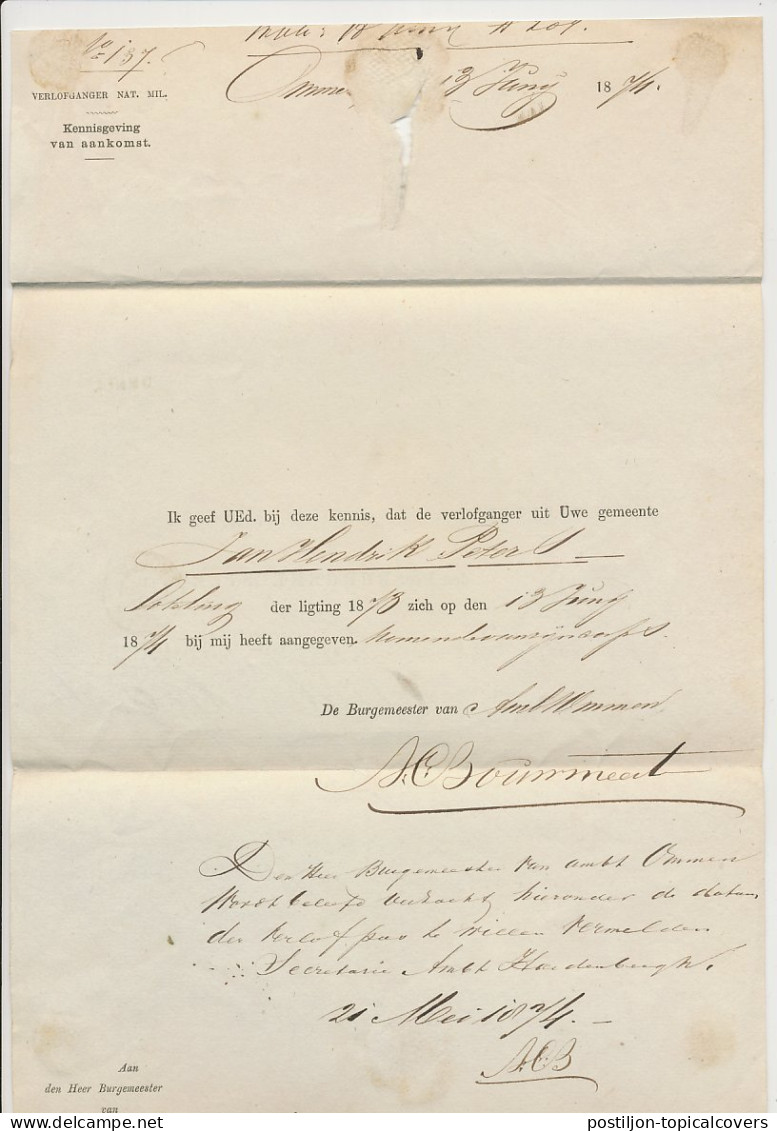 No 137.
Ommen, 13 Juny 1874.
VERLOFGANGER NAT. MIL.
Kennisgeving
van aankomst.
Ik geef UEd. bij deze kennis, dat de verlofganger uit Uwe gemeente
Jan Hendrik Peter
der ligting 1873 zich op den 13 Juny
1874 bij mij heeft aangegeven.
De Burgemeester van Ambt Ommen,
Den Heer Burgemeester van ambt Ommen
wordt beleefd verzocht hieronder de datum
der verlofpas te willen vermelden
Secretarie Ambt Hardenbergh,
21 Mei 1874.
Aan
den Heer Burgemeester
van
postiljon-topicalcovers